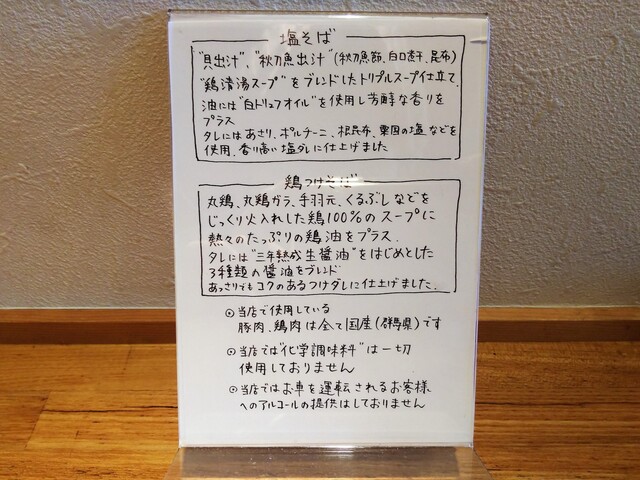 塩そば
"貝出汁"、"秋刀魚出汁"(秋刀魚節、白口煮干、昆布)
"鶏清湯スープ"をブレンドしたトリプルスープ仕立て。
油には"白トリュフオイル"を使用し芳醇な香りを
プラス
タレにはあさり、ポルチーニ、根昆布、粟国の塩などを
使用、香り高い塩ダレに仕上げました
鶏つけそば
丸鶏、丸鶏ガラ、手羽元、くるぶしなどを
じっくり火入れした鶏100%のスープに
熱々のたっぷりの鶏油をプラス。
タレには"三年熟成生醤油"をはじめとした
3種類の醤油をブレンド
あっさりでもコクのあるつけダレに仕上げました。
⊙当店で使用している
豚肉、鶏肉は全て国産(群馬県)です
⊙当店では"化学調味料"は一切
使用しておりません
⊙当店ではお車を運転されるお客様
へのアルコールの提供はしておりません